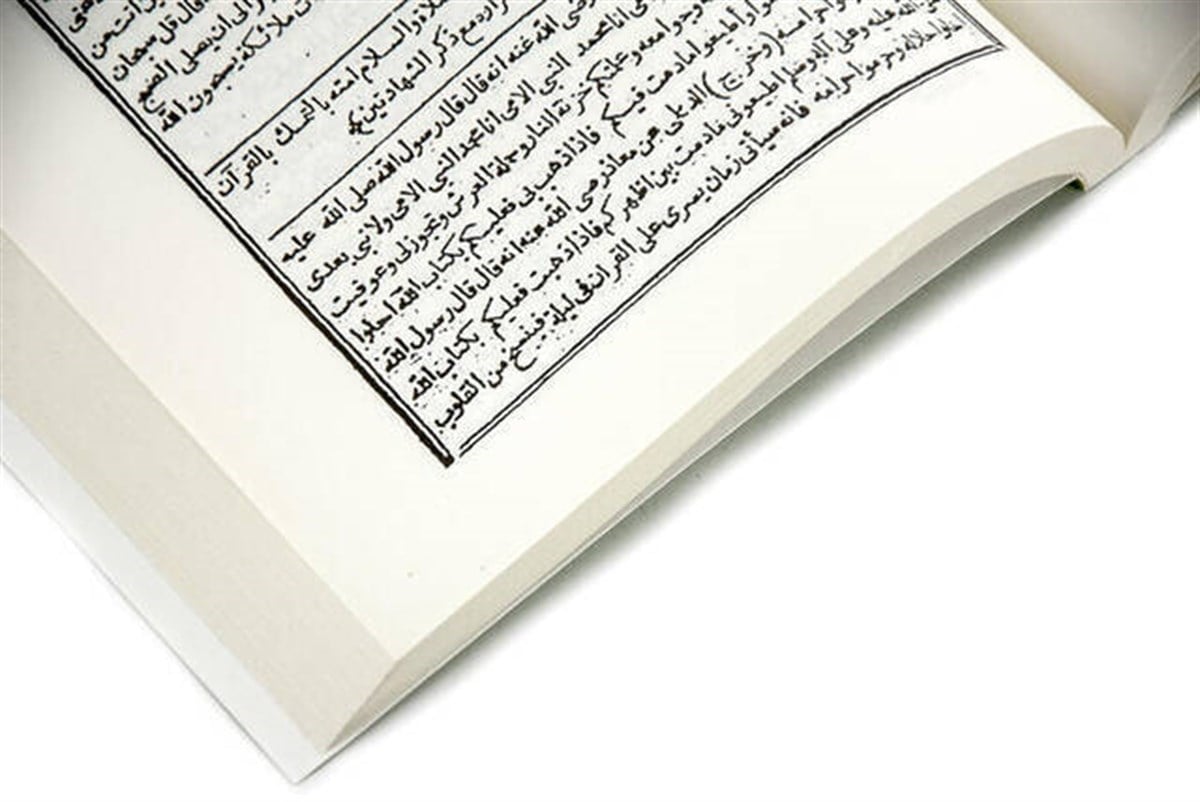 انت من
قال قل سبحان
الى ان يصلى الصبح
ملائكة يسبحون الله
والسلام امته بالتمسك بالقرآن
مع ذكر الشهادتين
رضى الله عنه انه قال قال رسول الله صلى الله عليه
انا محمد النبى الامى انا محمد النبى الامى ولا نبى بعدى
وجوامعه وعلمتم خزنة النار وحملة العرش وتجوز لى وعوفيت
وأطيعوا ما دمت فيكم فاذا ذهب بى فعليكم بكتاب الله احلوا
حرامه (وخرج) الديلمى عن معاذ رضى الله عنه انه قال قال رسول الله
الله عليه وعلى آله وسلم اطيعونى ما دمت بين اظهركم فاذا ذهبت فعليكم بكتاب الله
احلوا حلاله وحرموا حرامه فانه سيأتى زمان يسرى على القرآن فى ليلة فينسخ من القلوب